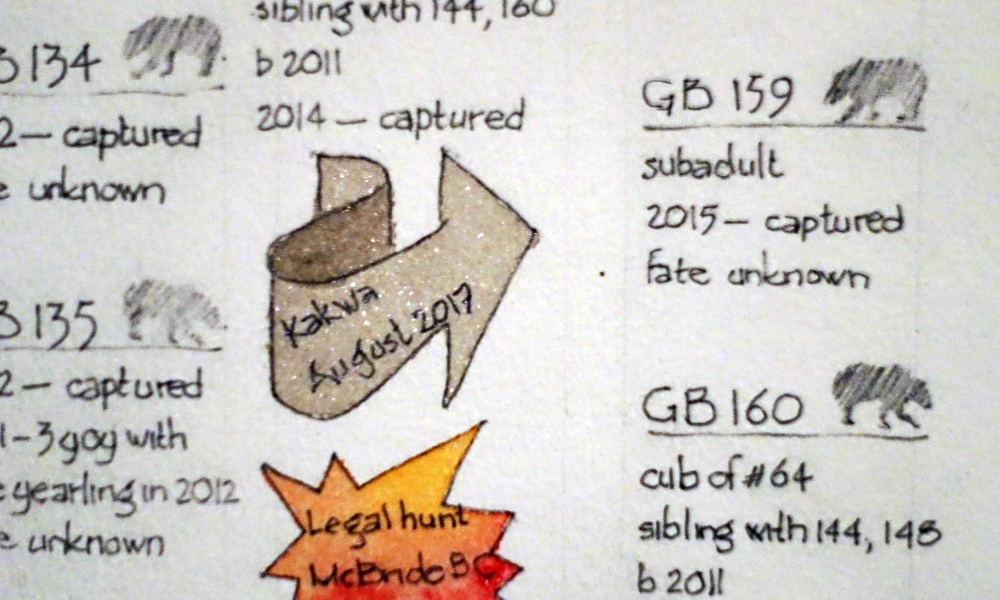 134
2 – captured
unknown
135
2 – captured
1-3 yoy with
yearling in 2012
unknown
sibling with 144, 160
b 2011
2014 – captured
Kakwa
August 2017
Legal hunt
McBride BC
GB 159
subadult
2015 – captured
fate unknown
GB 160
cub of #64
sibling with 144, 148
b 2011